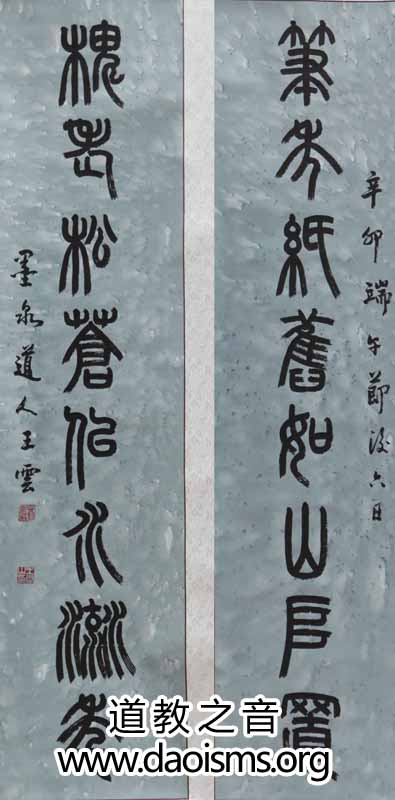 辛卯端午節後六日
筆禿紙舊如山
槐老松蒼似水流年
墨泉道人王雲
道教之音
www.daoisms.org